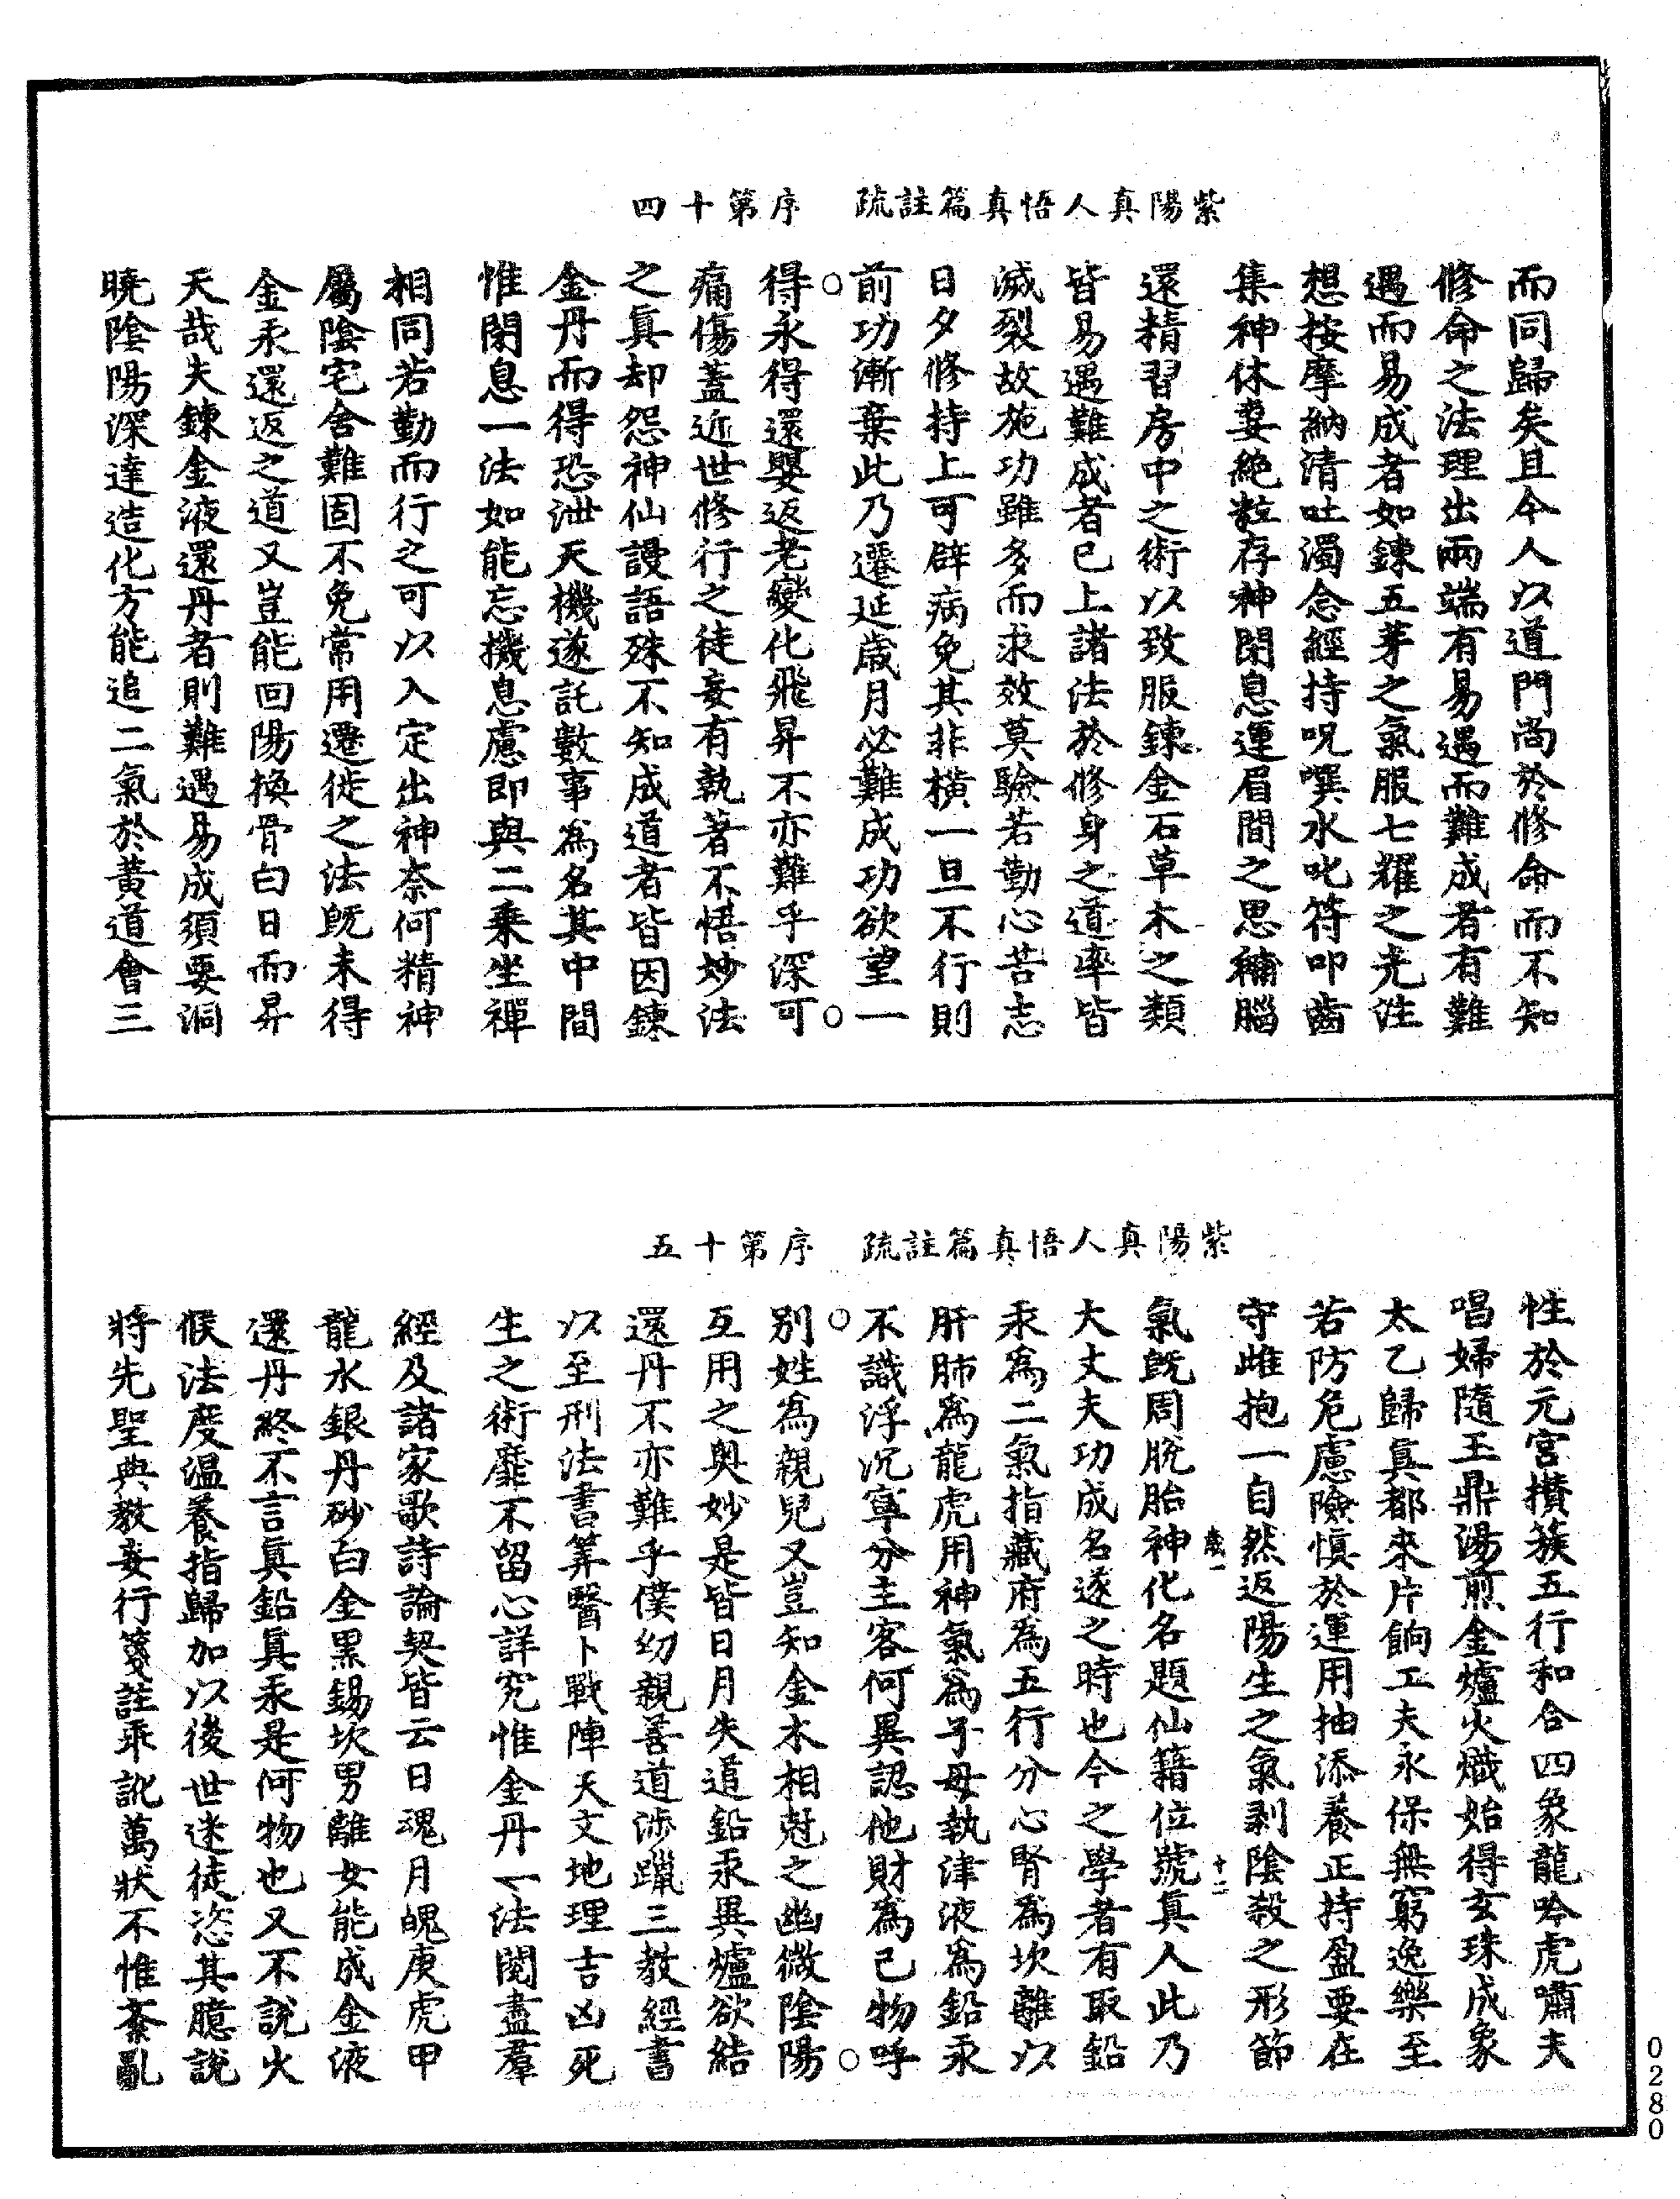 紫陽真人悟真篇註疏　序第十四
而同歸矣且今人以道門尚於修命而不知
修命之法理出兩端有易遇而難成者有難
遇而易成者如鍊五芽之氣服七耀之光注
想按摩納清吐濁念經持呪噀水叱符叩齒
集神休妻絶粒存神閉息運眉間之思補腦
還精習房中之術以致服鍊金石草木之類
皆易遇難成者已上諸法於修身之道率皆
滅裂故施功雖多而求效莫驗若勤心苦志
日夕修持上可辟病免其非橫一旦不行則
前功漸棄此乃遷延歲月必難成功欲望一
得永得還嬰返老變化飛昇不亦難乎深可
痛傷蓋近世修行之徒妄有執著不悟妙法
之真却怨神仙謾語殊不知成道者皆因鍊
金丹而得恐泄天機遂託數事為名其中間
惟閉息一法如能忘機息慮即與二乘坐禪
相同若勤而行之可以入定出神柰何精神
屬陰宅舍難固不免常用遷徙之法既未得
金汞還返之道又豈能回陽換骨白日而昇
天哉夫鍊金液還丹者則難遇易成須要洞
曉陰陽深達造化方能追二氣於黃道會三
紫陽真人悟真篇註疏　序第十五
性於元宮攢簇五行和合四象龍吟虎嘯夫
唱婦隨玉鼎湯煎金爐火熾始得玄珠成象
太乙歸真都來片餉工夫永保無窮逸樂至
若防危慮險慎於運用抽添養正持盈要在
守雌抱一自然返陽生之氣剥陰殺之形節
歲一　十二
氣既周脫胎神化名題仙籍位號真人此乃
大丈夫功成名遂之時也今之學者有取鉛
汞為二氣指藏府為五行分心腎為坎離以
肝肺為龍虎用神氣為子母執津液為鉛汞
不識浮沉寧分主客何異認他財為己物呼
別姓為親兒又豈知金木相尅之幽微陰陽
互用之奥妙是皆日月失道鉛汞異爐欲結
還丹不亦難乎僕幼親善道涉躐三教經書
以至刑法書筭醫卜戰陣天文地理吉凶死
生之術靡不留心詳究惟金丹一法閱盡羣
經及諸家歌詩論契皆云日魂月魄庚虎甲
龍水銀丹砂白金黒錫坎男離女能成金液
還丹終不言真鉛真汞是何物也又不說火
候法度溫養指歸加以後世迷徒恣其臆說
將先聖典教妄行箋註乖訛萬狀不惟紊亂
0280